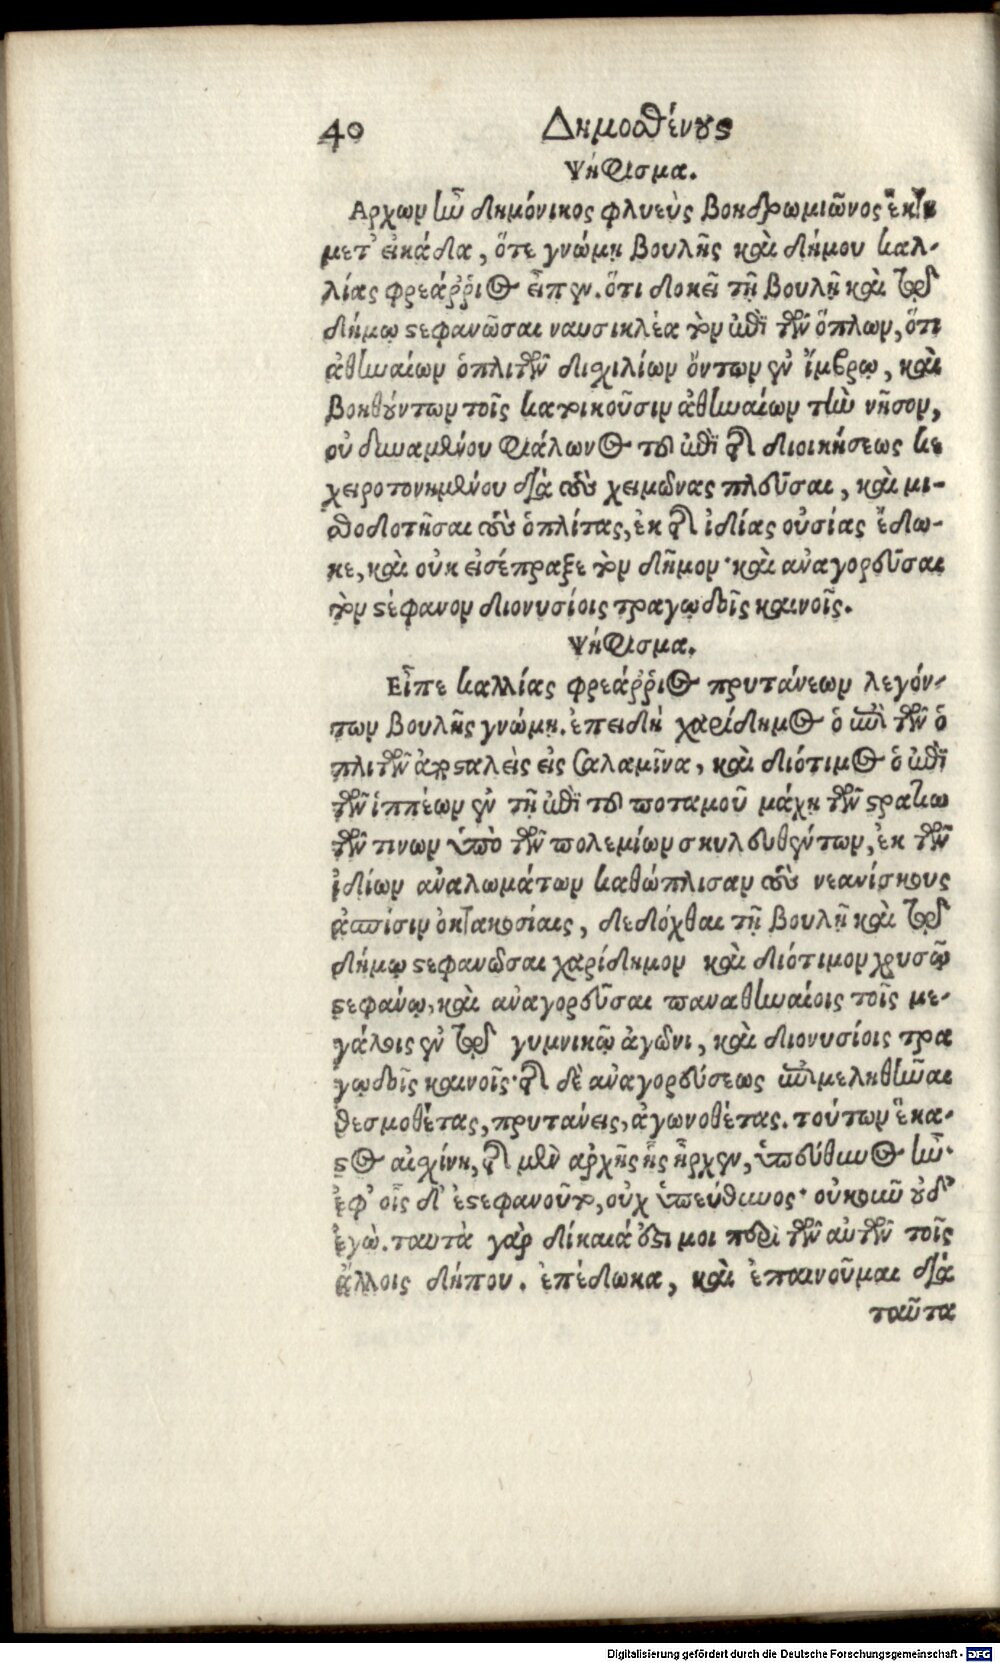 40 Δημοσθένους
Ψήφισμα.
Αρχων ἦν δημόνικος φλυεὺς βοηδρομιῶνος ἕκτῃ
μετ' εἰκάδα, ὅτε γνώμῃ βουλῆς καὶ δήμου καλ-
λίας φρεάῤῥιος εἶπεν. ὅτι δοκεῖ τῇ βουλῇ καὶ τῷ
δήμῳ στεφανῶσαι ναυσικλέα τὸν ἐπὶ τῶν ὅπλων, ὅτι
ἀθηναίων ὁπλιτῶν διχιλίων ὄντων ἐν ἴμβρῳ, καὶ
βοηθούντων τοῖς κατοικοῦσιν ἀθηναίων τὴν νῆσον,
οὐ δυναμένου φιάλωνος τοῦ ἐπὶ τῆς διοικήσεως κε
χειροτονημένου διὰ τοὺς χειμῶνας πλεῦσαι, καὶ μι-
σθοδοτῆσαι τοὺς ὁπλίτας, ἐκ τῆς ἰδίας οὐσίας ἔδω-
κε, καὶ οὐκ εἰσέπραξε τὸν δῆμον· καὶ αναγορεῦσαι
τὸν στέφανον διονυσίοις τραγῳδοῖς καινοῖς.
Ψήφισμα.
Εἶπε καλλίας φρεάῤῥιος πρυτάνεων λεγόν-
των βουλῆς γνώμῃ. ἐπειδὴ χαρίδημος ὁ ἐπὶ τῶν ὁ
πλιτῶν ἀποσταλεὶς εἰς Σαλαμῖνα, καὶ διότιμος ὁ ἐπὶ
τῶν ἱππέων ἐν τῇ ἐπὶ τοῦ ποταμοῦ μάχῃ τῶν στρατιω
τῶν τινων ὑπὸ τῶν πολεμίων σκυλευθέντων, ἐκ τῶν
ἰδίων αναλωμάτων καθώπλισαν τοὺς νεανίσκους
ἀσπίσιν ὀκτακοσίαις, δεδόχθαι τῇ βουλῇ καὶ τῷ
δήμῳ στεφανῶσαι χαρίδημον καὶ διότιμον χρυσῷ
στεφάνῳ, καὶ αναγορεῦσαι παναθηναίοις τοῖς με-
γάλοις ἐν τῷ γυμνικῷ ἀγῶνι, καὶ διονυσίοις τρα
γῳδοῖς καινοῖς· τῆς δὲ αναγορεύσεως ἐπιμεληθῆναι
θεσμοθέτας, πρυτάνεις, ἀγωνοθέτας. τούτων ἕκα-
στος αἰσχίνη, τῆς μὲν αρχῆς ἧς ἦρχεν, ὑπεύθυνος ἦν·
ἐφ' οἷς δ' ἐστεφανοῦτο, οὐχ ὑπεύθυνος· οὐκοῦν οὐδ'
ἐγὼ. ταυτὰ γὰρ δίκαιά ἐστι μοι περὶ τῶν αὐτῶν τοῖς
ἄλλοις δήπου. ἐπέδωκα, καὶ ἐπαινοῦμαι διὰ
ταῦτα
Digitalisierung gefördert durch die Deutsche Forschungsgemeinschaft - DFG